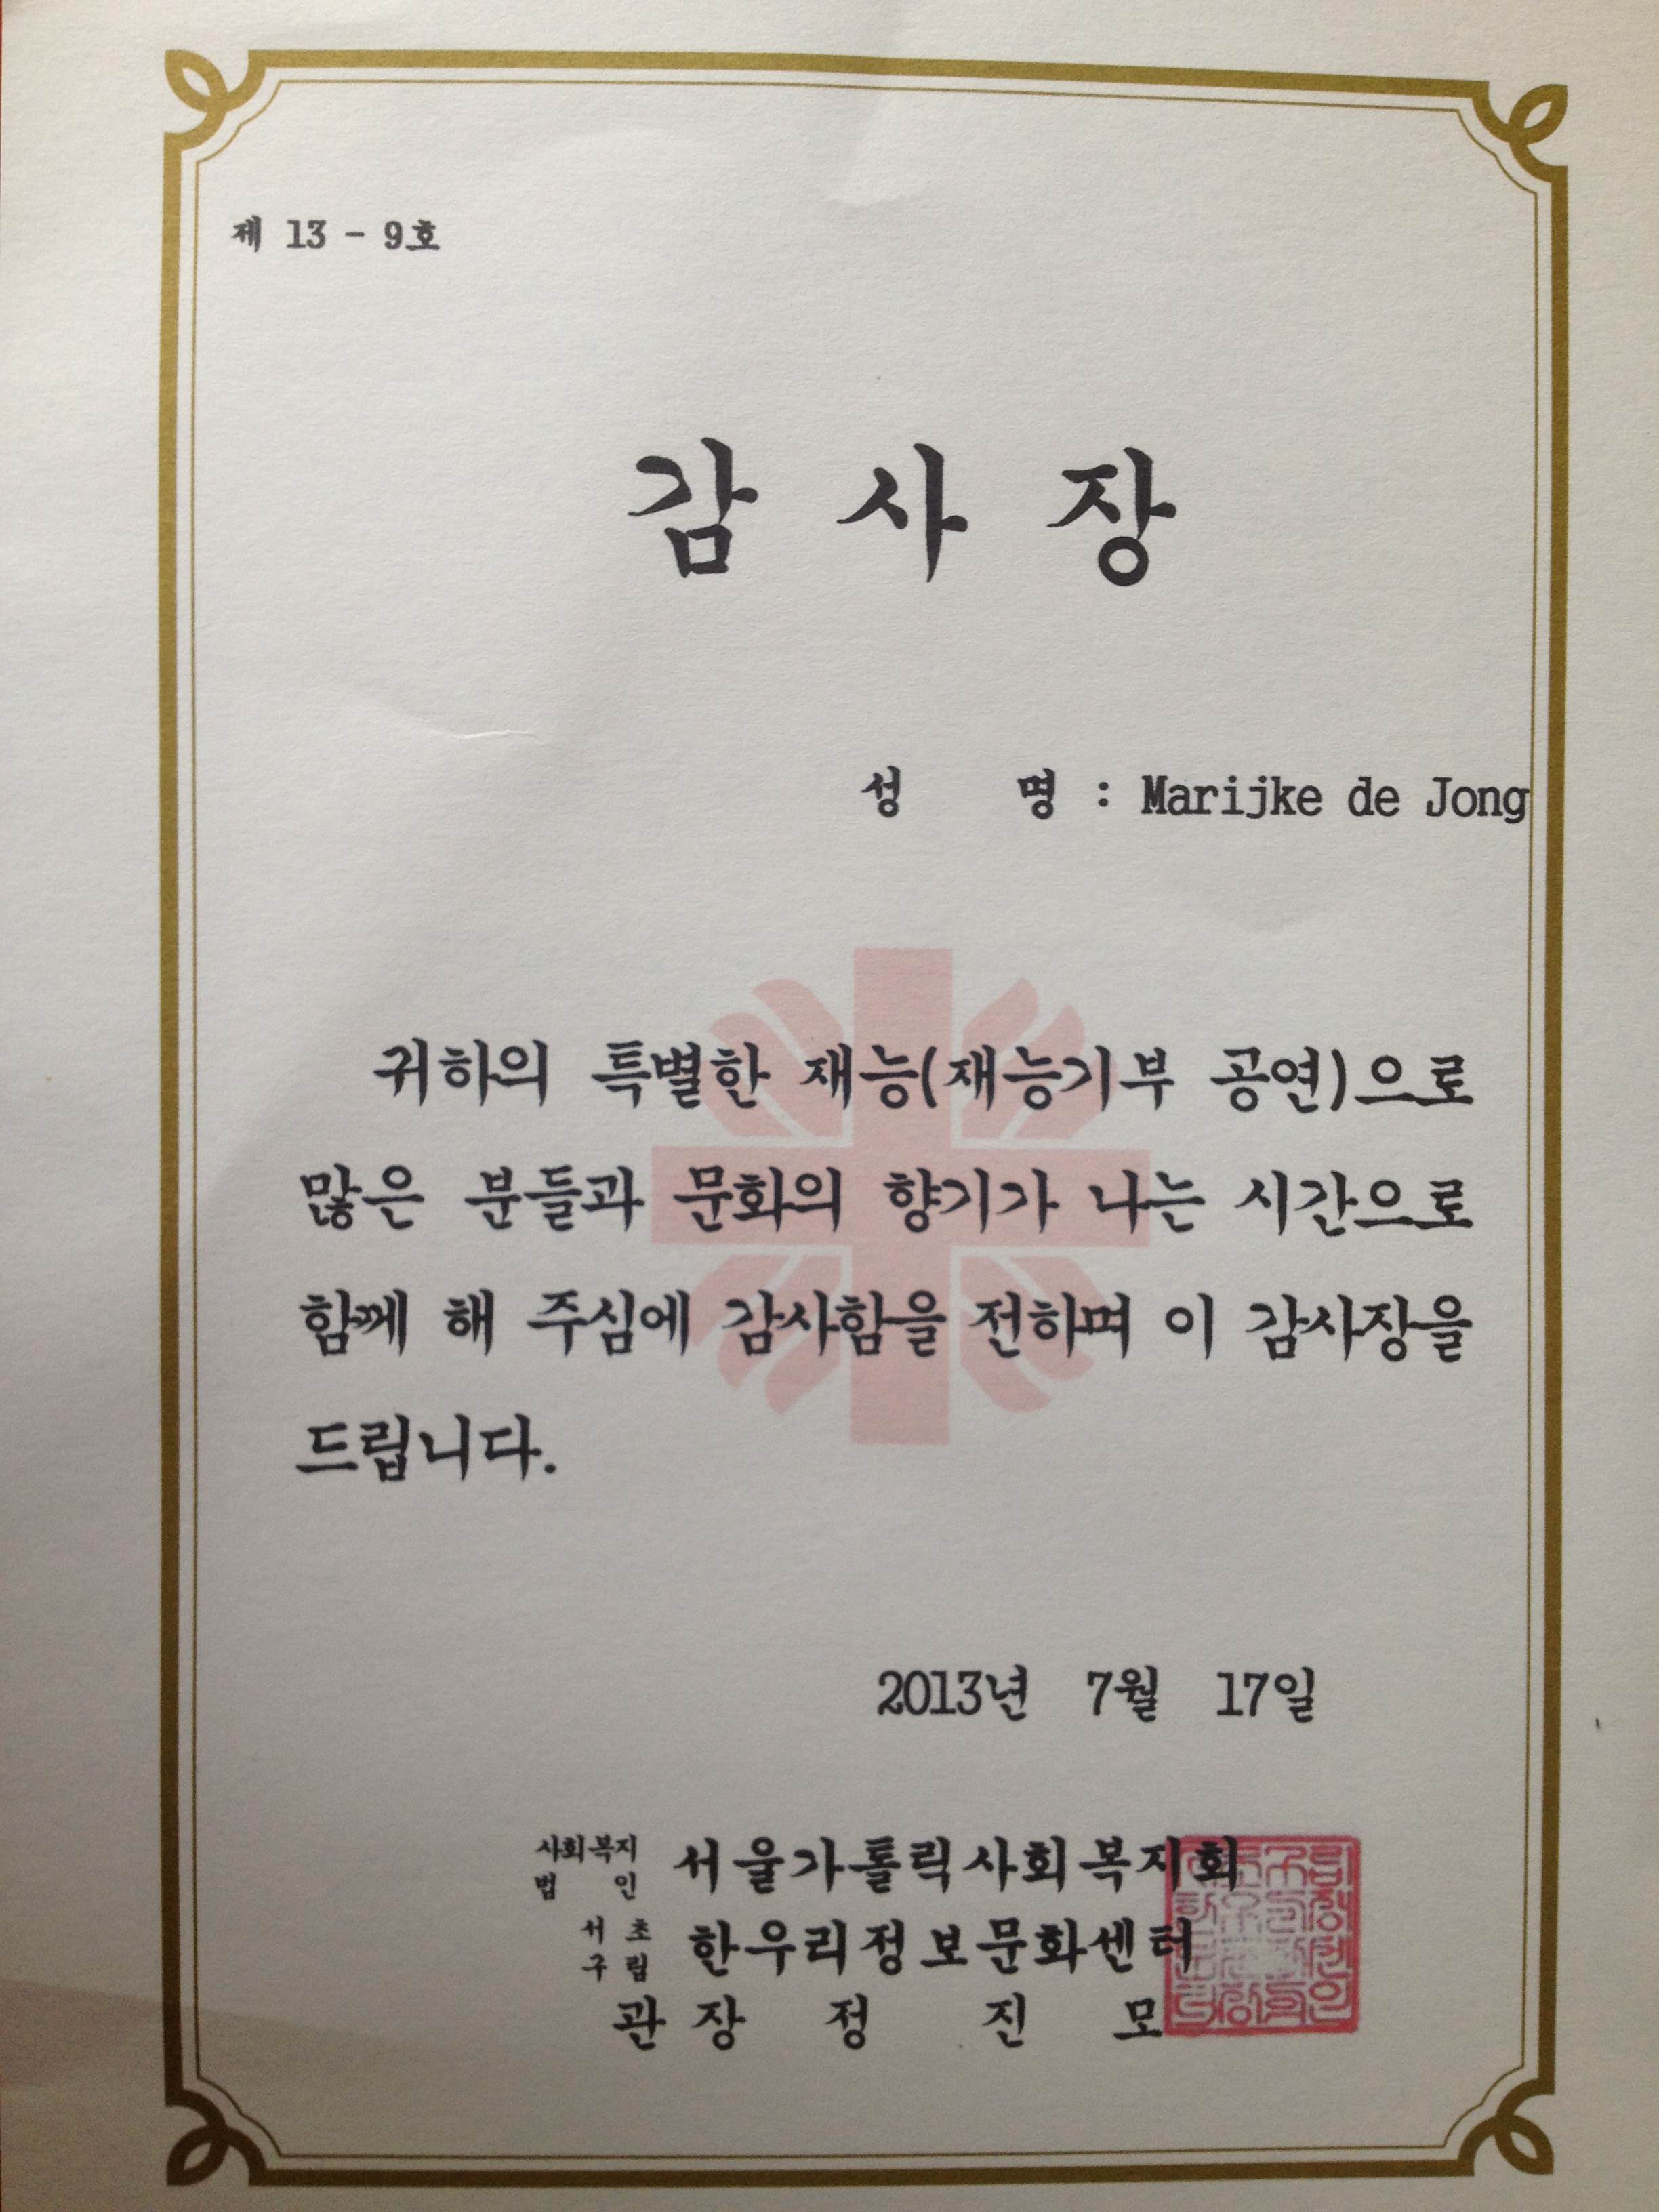 제 13 - 9호
감 사 장
성 명 : Marijke de Jong
귀하의 특별한 재능(재능기부 공연)으로
많은 분들과 문화의 향기가 나는 시간으로
함께 해 주심에 감사함을 전하며 이 감사장을
드립니다.
2013년 7월 17일
사회복지법인 서울가톨릭사회복지회
서초구립 한우리정보문화센터
관장 정 진 모